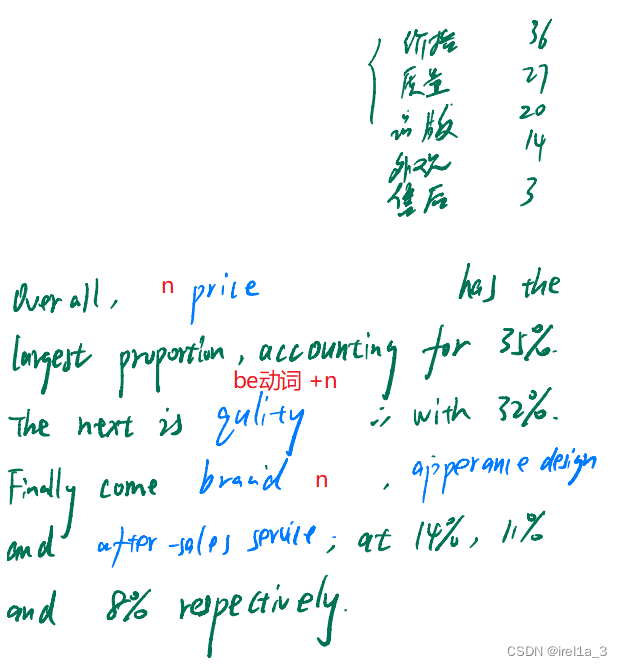 价格 36
质量 27
品牌 20
外观 14
售后 3
Overall, n price has the
largest proportion, accounting for 35%.
be动词 +n
The next is qulity with 32%.
Finally come braid n , apperance design
and after-sales service, at 14%, 11%
and 8% respectively.
CSDN @irel1a_3